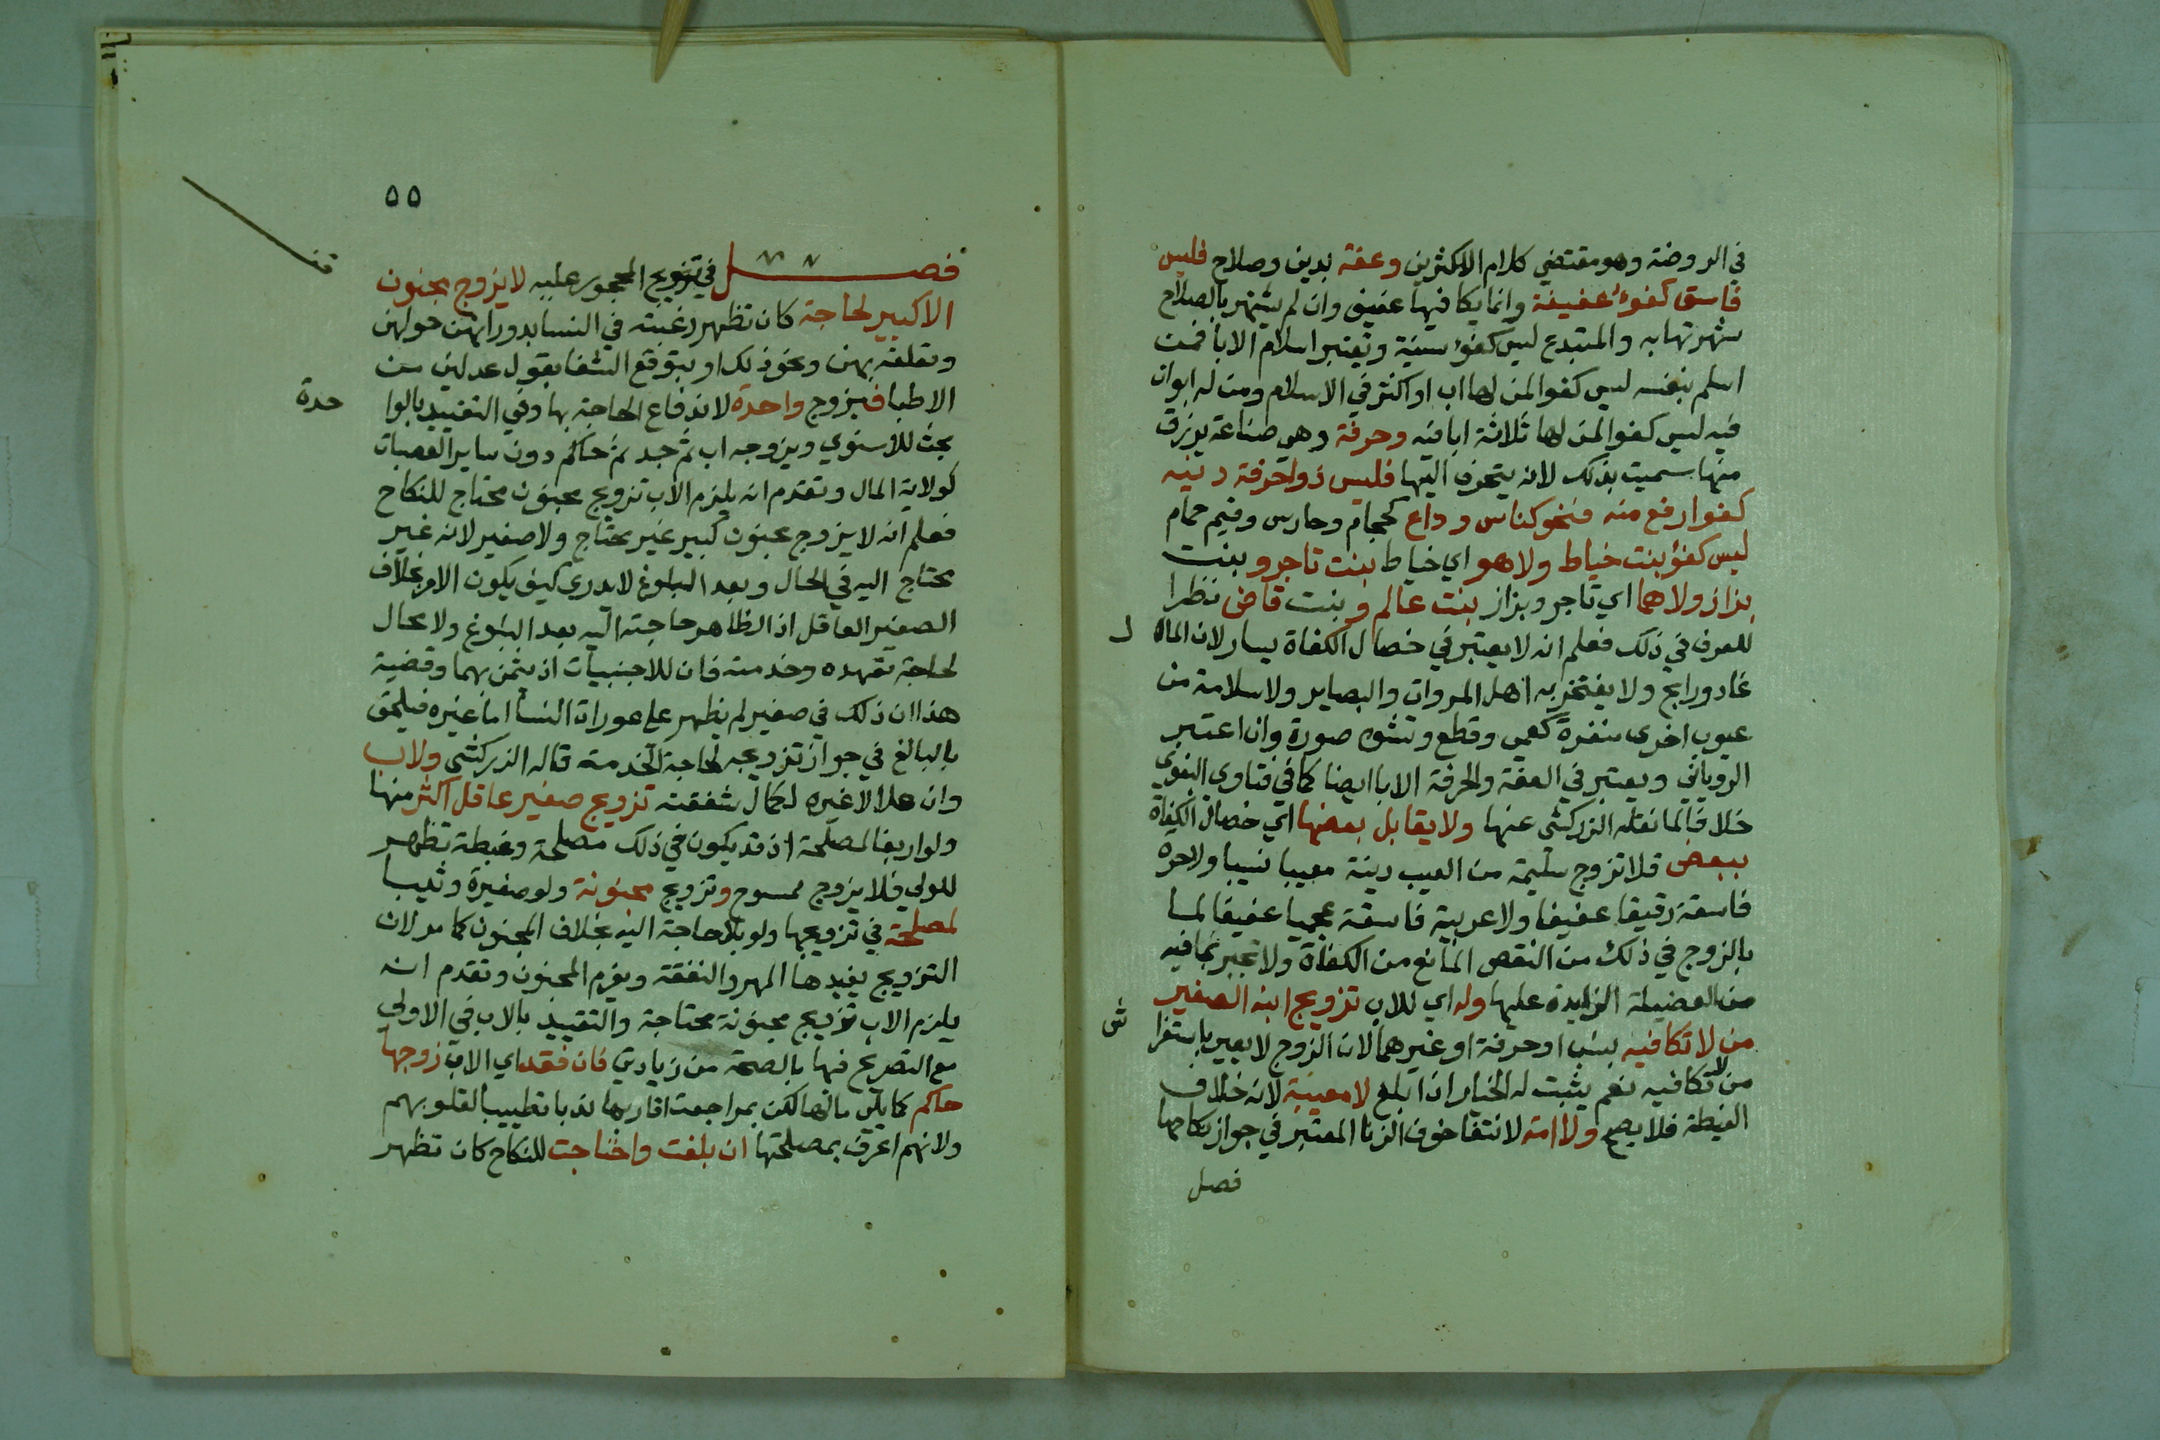 في الروضة وهو مقتضي كلام الاكثرين وعفة بدين وصلاح فليس
فاسق كفوء عفيفة وانما يكافيها عفيف وان لم يشتهر بالصلاح
شهرتها به والمبتدع ليس كفوء سنية ويعتبر اسلام الابا فمن
اسلم بنفسه ليس كفوا لمن لها اب او اكثر في الاسلام ومن له ابوان
فيه ليس كفوا لمن لها ثلاثة ابا فيه وحرفة وهي صناعة يرتزق
منها سميت بذلك لانه يتحرف اليها فليس ذو احرفة دنيه
كفوا ارفع منه فنحو كناس وداع كحجام وحارس وقيم حمام
ليس كفؤ بنت خياط ولا هو اي خياط بنت تاجر وبنت
بزاز ولا هما اي تاجر وبزاز بنت عالم وبنت قاض نظرا
للعرف في ذلك فعلم انه لا يعتبر في خصال الكفاة يسار لان الما
ل
غاد ورايح ولا يفتخر به اهل المروات والبصاير ولا سلامة من
عيوب اخرى منفرة كعمي وقطع وتشوه صورة وان اعتبر
الروياني ويعتبر في العفة والحرفة الابا ايضا كما في فتاوي البغوي
خلافا لما نقله الزركشي عنها ولا يقابل بعضها اي خصال الكفاة
ببعض فلا تزوج سليمة من العيب دينة معيبا نسيبا ولا حرة
فاسقة رقيقا عفيفا ولا عربية فاسقة عجميا عفيفا لما
بالزوج في ذلك من النقص المانع من الكفاة ولا تجبر بما فيه
من الفضيلة الزايدة عليها وله اي للاب تزويج ابنه الصغير
من لا تكافيه بنسب او حرفة او غيرهما لان الزوج لا يعير باستفرا
ش
من لا تكافيه نعم يثبت له الخيار اذا بلغ لا معيبة لانه خلاف
الغبطة فلا يصح ولا امة لانتفا خوف الزنا المعتبر في جواز نكاحها
فصل
٥٥
فصل في تزويج المحجور عليه لا يزوج مجنون
الا كبير لحاجة كان تظهر رغبته في النسا بدورانه حولهن
وتعلقه بهن ونحو ذلك او بتوقع الشفا بقول عدلين من
الاطبا فيزوج واحدة لاندفاع الحاجة بها وفي التقييد بالوا
حدة
بحث للاسنوي ويزوجه اب ثم جد ثم حاكم دون ساير العصبات
كولاية المال وتقدم انه يلزم الاب تزويج مجنون محتاج للنكاح
فعلم انه لا يزوج مجنون كبير غير محتاج ولا صغير لانه غير
محتاج اليه في الحال وبعد البلوغ لا يدري كيف يكون الامر بخلاف
الصغير العاقل اذ الظاهر حاجته اليه بعد البلوغ ولا مجال
لحاجة تعهده وخدمته فان للاجنبيات ان يقمن بهما وقضية
هذا ان ذلك في صغير لم يظهر علي عورات النسا اما غيره فيلحق
بالبالغ في جواز تزويجه لحاجة الخدمة قاله الزركشي ولاب
وان علا لا غيره لكمال شفقته تزويج صغير عاقل اكثر منها
ولو اربعا لمصلحة اذ قد يكون في ذلك مصلحة وغبطة تظهر
للولي فلا يزوج ممسوح وتزويج مجنونة ولو صغيرة وثيبا
لمصلحة في تزويجها ولو بلا حاجة اليه بخلاف المجنون كما مر لان
التزويج يفيدها المهر والنفقة ويغرم المجنون وتقدم انه
يلزم الاب تزويج مجنونة محتاجة والتقييد بالاب في الاولي
مع التصريح فيها بالصحة من زيادتي فان فقد اي الاب زوجها
حاكم كما يلي مالها لكن بمراجعت اقاربها ندبا تطييبا لقلوبهم
ولانهم اعرف بمصلحتها ان بلغت واحتاجت للنكاح كان تظهر